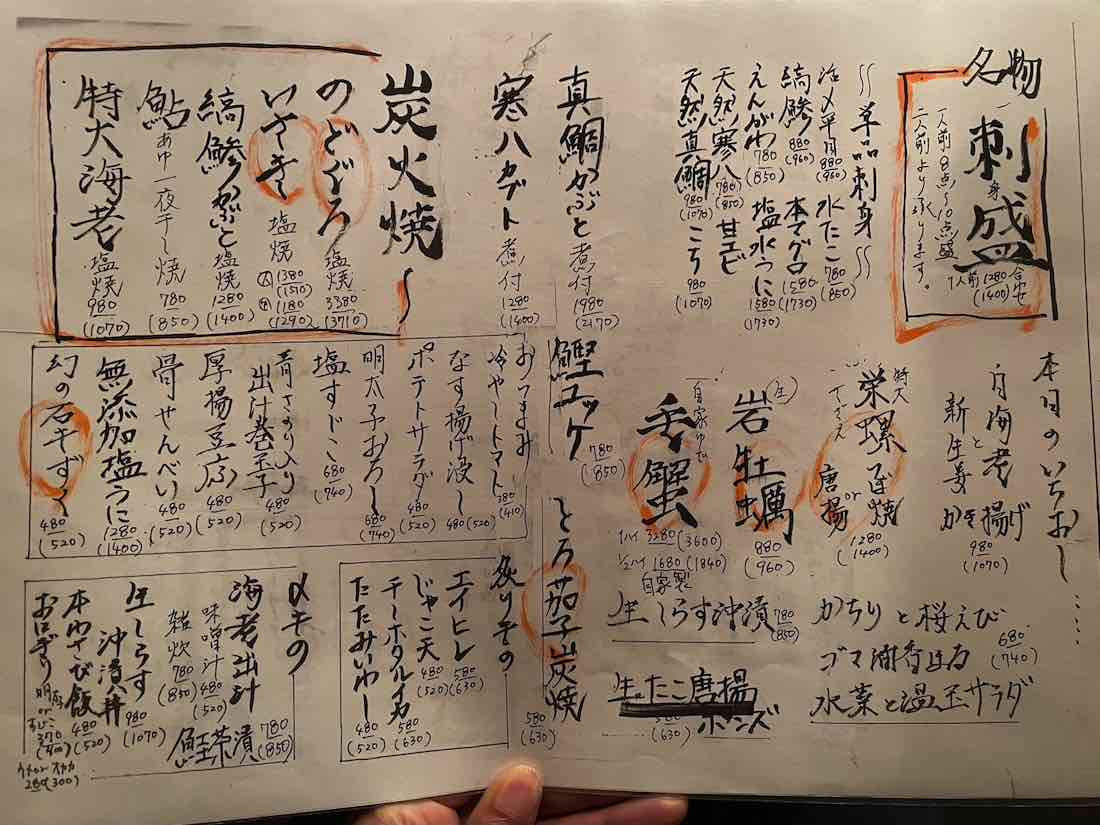 名物
刺身盛
一人前8点〜10点盛
二人前より承ります。
1人前 1280 (1400)
〜単品刺身〜
活〆平目 880 (960)
水たこ 780 (850)
縞鯵 880 (960)
本マグロ 1580 (1730)
えんがわ 780 (850)
塩水うに 1580 (1730)
天然寒八 780 (850)
甘エビ
天然真鯛 980 (1070)
こち 980 (1070)
真鯛かぶと煮付 1980 (2170)
寒八カブト煮付 1280 (1400)
炭火焼〜
のどぐろ 塩焼 3380 (3710)
いさき 塩焼 大 1380 (1510) 中 1180 (1290)
縞鯵かぶと塩焼 1280 (1400)
鮎 あゆ 一夜干し焼 780 (850)
特大海老 塩焼 980 (1070)
本日のいちおし……
白海老と新生姜 かき揚げ 980 (1070)
特大 栄螺 さざえ 壺焼 or 唐揚 1280 (1400)
(生) 岩牡蠣 880 (960)
自家ゆで 毛蟹
1ハイ 3280 (3600)
1/2ハイ 1680 (1840)
自家製
生しらす沖漬 780 (850)
生たこ唐揚
ポンズ 580 (630)
かちりと桜えび
ゴマ油香る
水菜と温玉サラダ 680 (740)
鰹ユッケ 780 (850)
とろ茄子炭焼 580 (630)
おつまみ
冷やしトマト 380 (410)
なす揚げ浸し 480 (520)
ポテトサラダ 480 (520)
明太子おろし 680 (740)
塩すじこ 680 (740)
青さのり入り出汁巻玉子 480 (520)
厚揚豆腐 480 (520)
骨せんべい 480 (520)
無添加塩うに 1280 (1400)
幻の石もずく 480 (520)
炙りもの
エイヒレ 580 (630)
じゃこ天 480 (520)
チーホタルイカ 580 (630)
たたみいわし 480 (520)
〆もの
海老出汁
味噌汁 480 (520)
雑炊 780 (850)
鮭茶漬 780 (850)
生しらす沖漬丼 980 (1070)
本わさび飯 480 (520)
おにぎり 明太 or すじこ 370 (400)
280 (300)